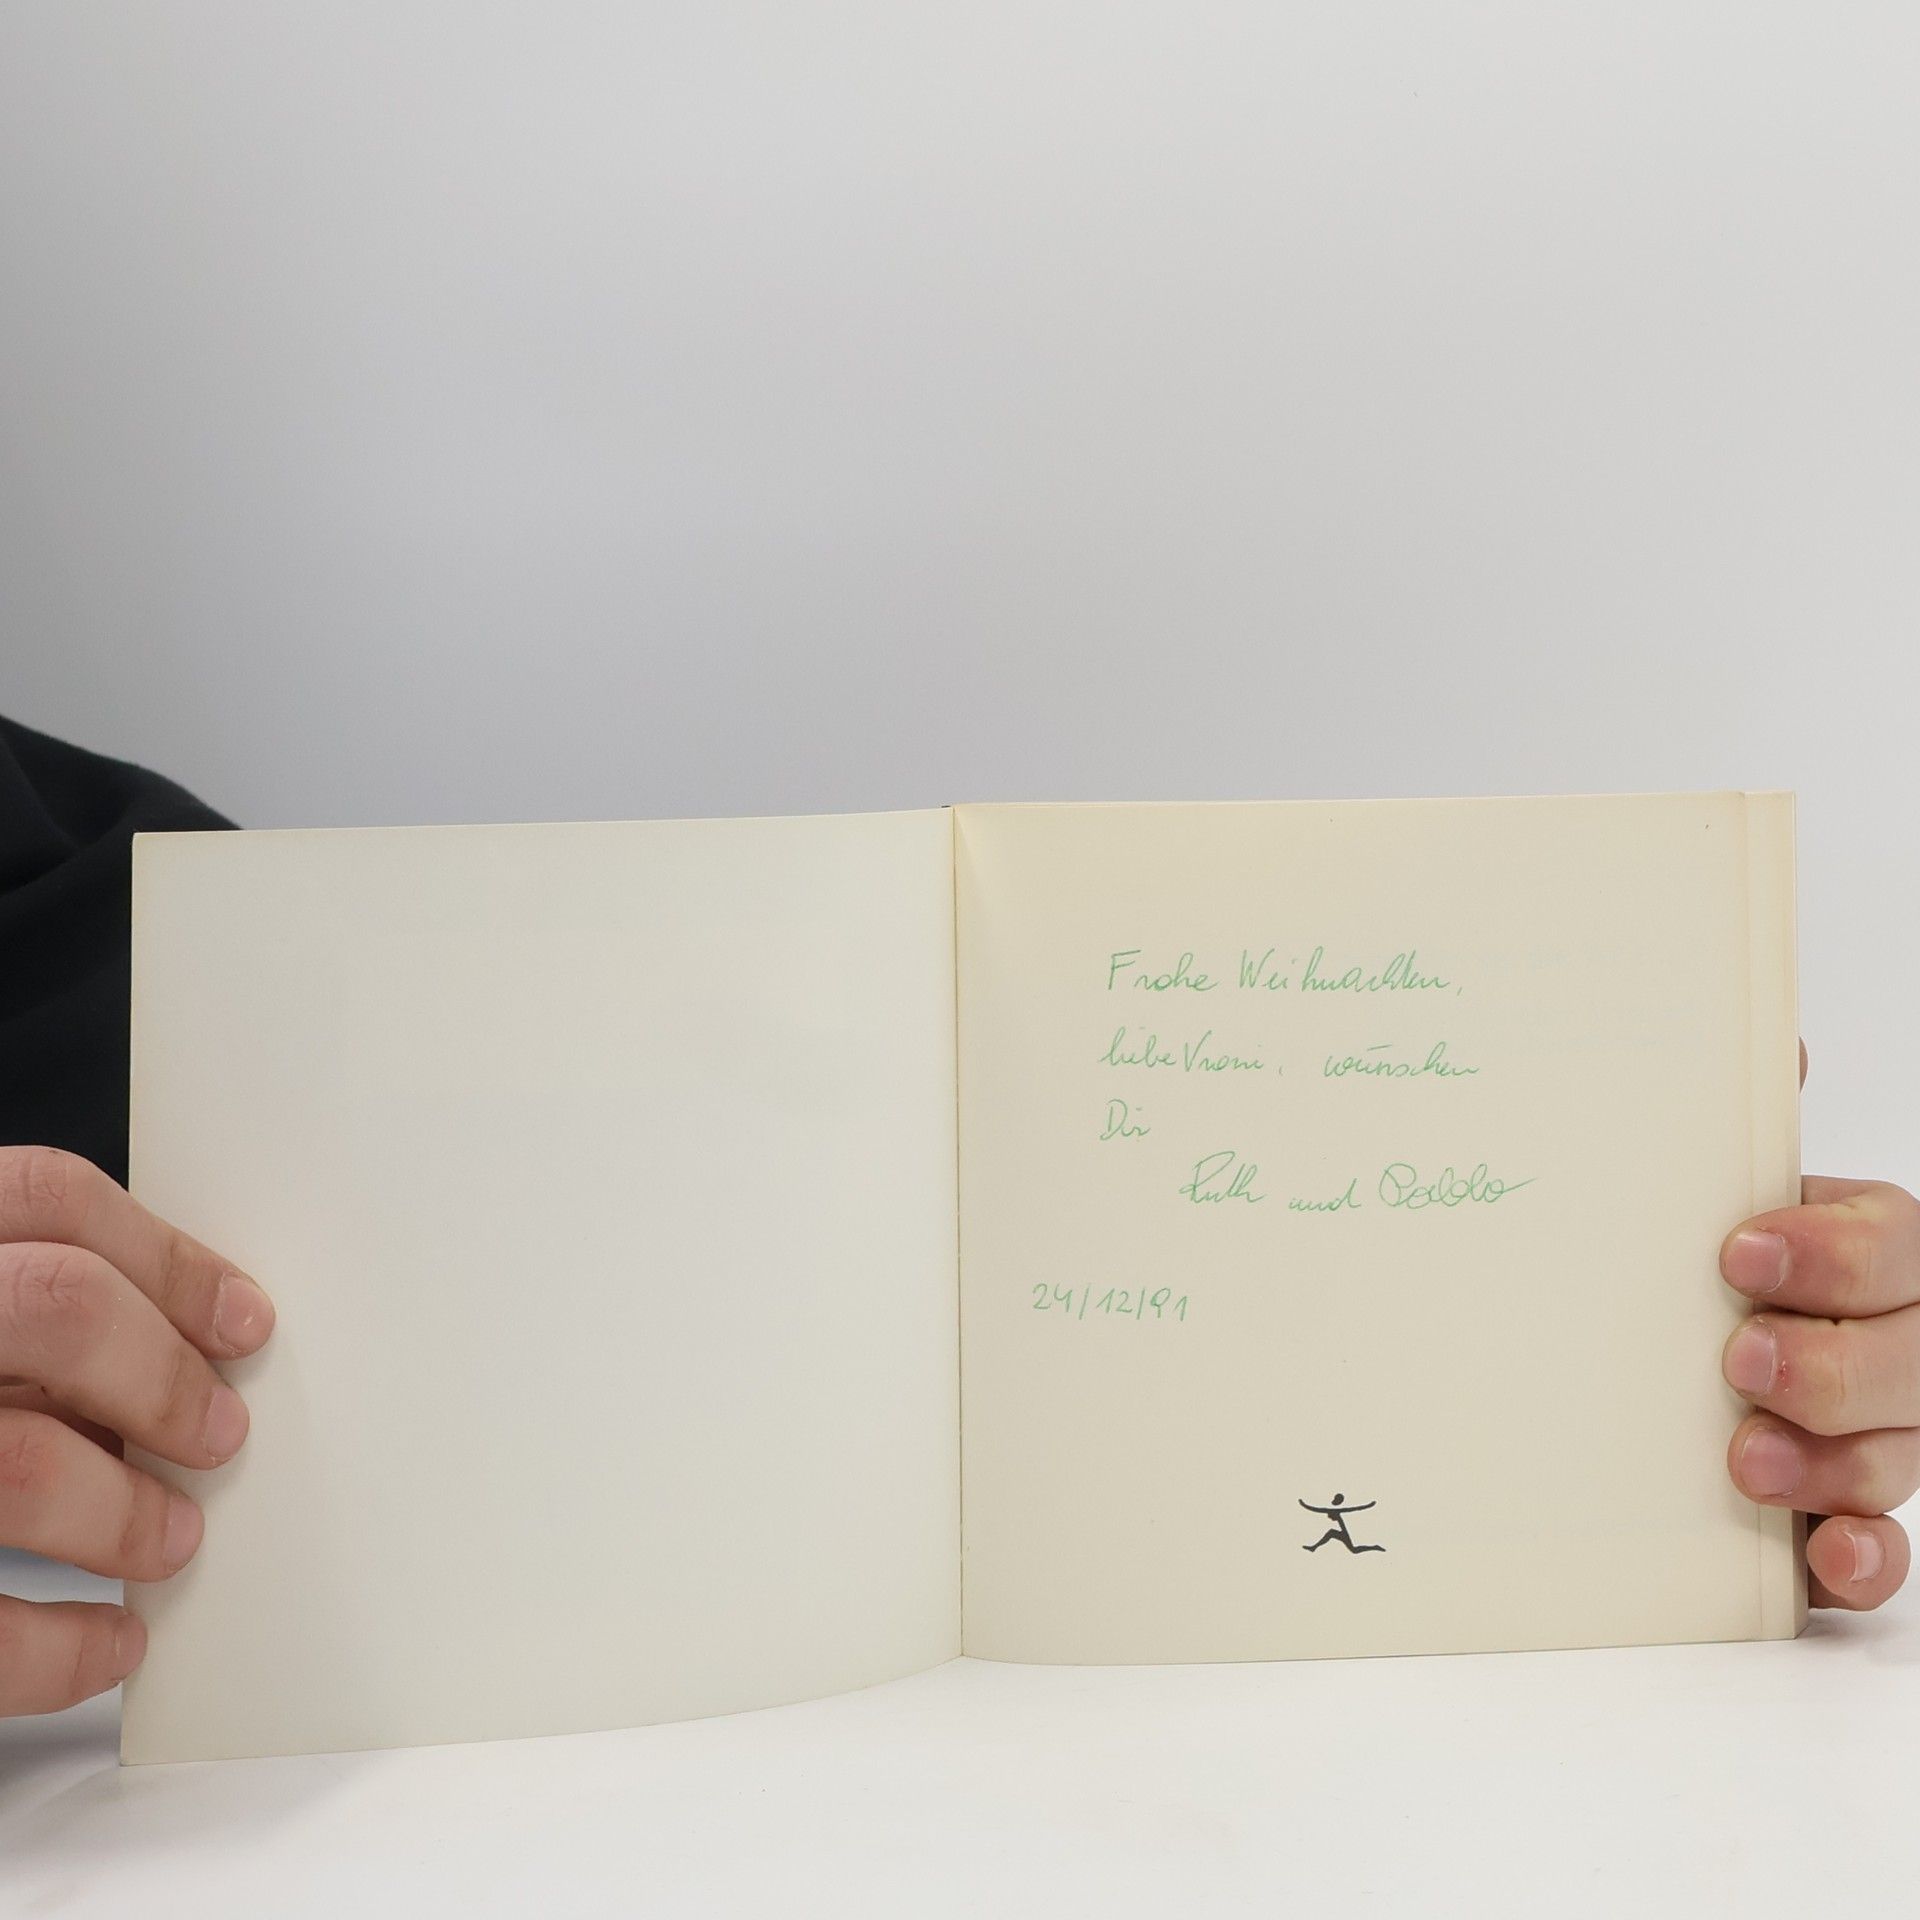 Frohe Weihnachten,
liebe Vroni, wünschen
Dir
Ruth und
24/12/91